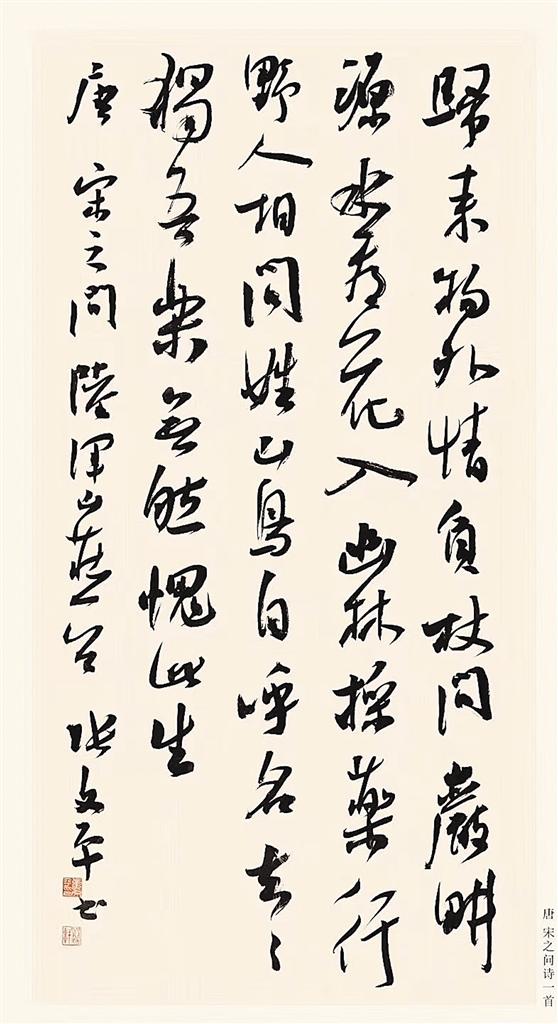 歸来物外情負杖問巖畊
源水看花入幽林採藥行
野人相問姓山鳥自呼名去々
獨吾樂無然愧此生
唐 宋之問 陸渾山 張文平书
唐 宋之问诗一首